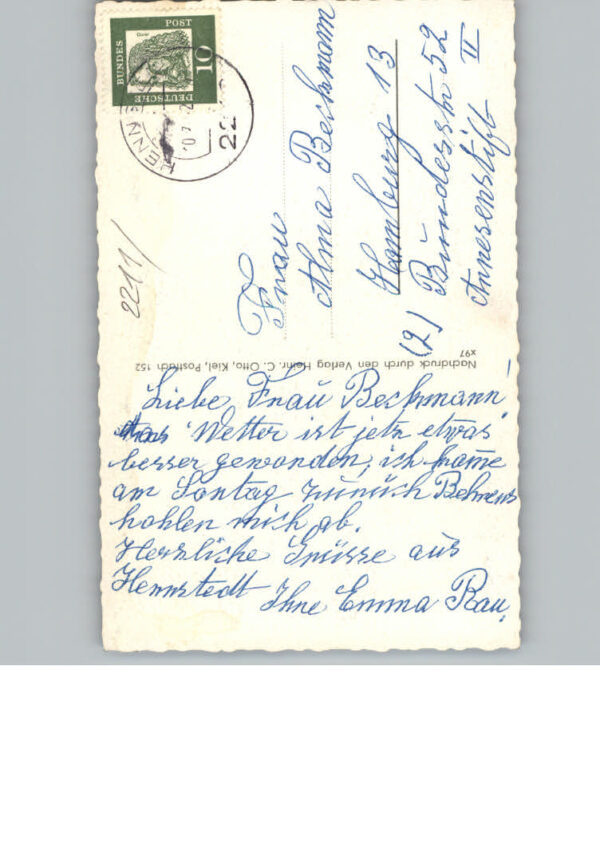 Dürer
DEUTSCHE
BUNDES
POST
10
HENN
22
2211/
Frau
Alma Beckmann
Hamburg 13
(2) Bundesstr 52
Annenstift II
Nachdruck durch den Verlag Heinr. C. Otto, Kiel, Postfach 152
x97
Liebe Frau Beckmann!
Das Wetter ist jetz etwas
besser geworden, ich kome
am Sontag zurück Behrens
hohlen mich ab.
Herzliche Grüsse aus
Hennstedt Ihre Emma Rau.